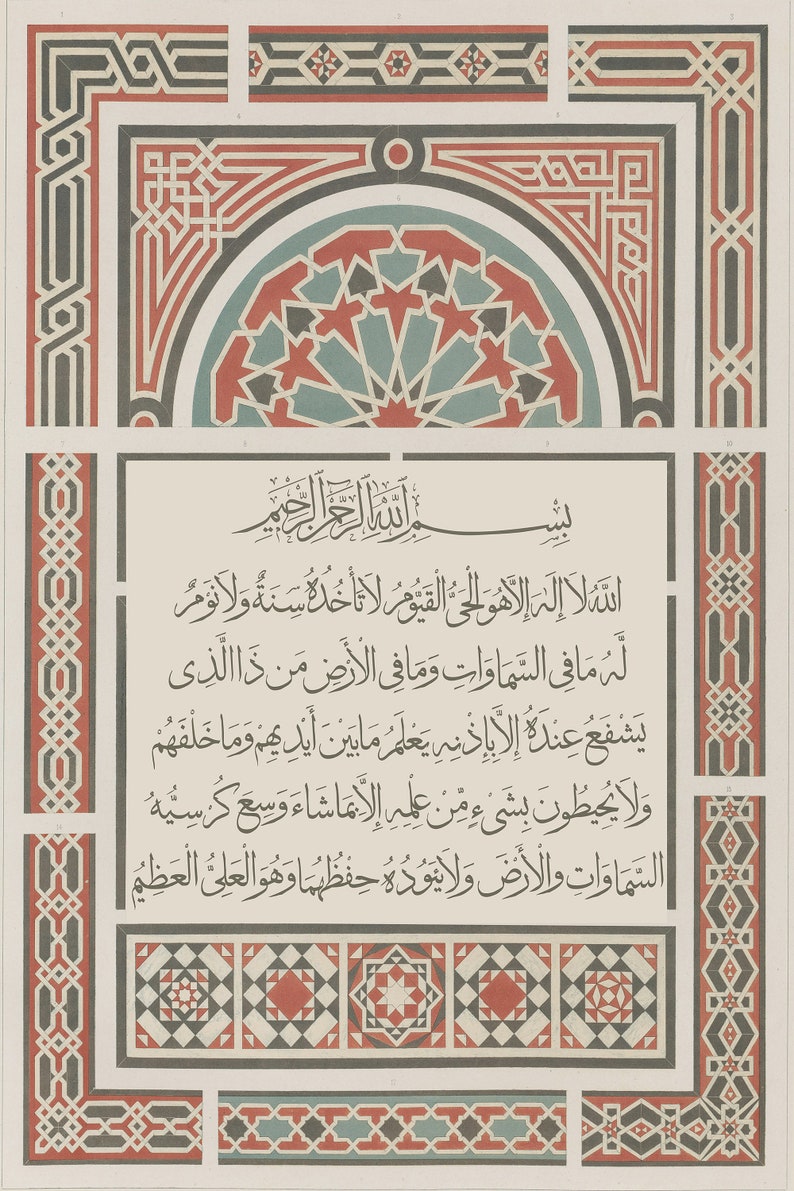 1
2
3
4
5
6
بِسْمِ ٱللَّهِ ٱلرَّحْمَٰنِ ٱلرَّحِيمِ
7
8
9
10
اللَّهُ لَا إِلَٰهَ إِلَّا هُوَ الْحَيُّ الْقَيُّومُ لَا تَأْخُذُهُ سِنَةٌ وَلَا نَوْمٌ
لَّهُ مَا فِي السَّمَاوَاتِ وَمَا فِي الْأَرْضِ مَن ذَا الَّذِي
يَشْفَعُ عِنْدَهُ إِلَّا بِإِذْنِهِ يَعْلَمُ مَا بَيْنَ أَيْدِيهِمْ وَمَا خَلْفَهُمْ
وَلَا يُحِيطُونَ بِشَيْءٍ مِّنْ عِلْمِهِ إِلَّا بِمَا شَاءَ وَسِعَ كُرْسِيُّهُ
السَّمَاوَاتِ وَالْأَرْضَ وَلَا يَئُودُهُ حِفْظُهُمَا وَهُوَ الْعَلِيُّ الْعَظِيمُ
14
15
17